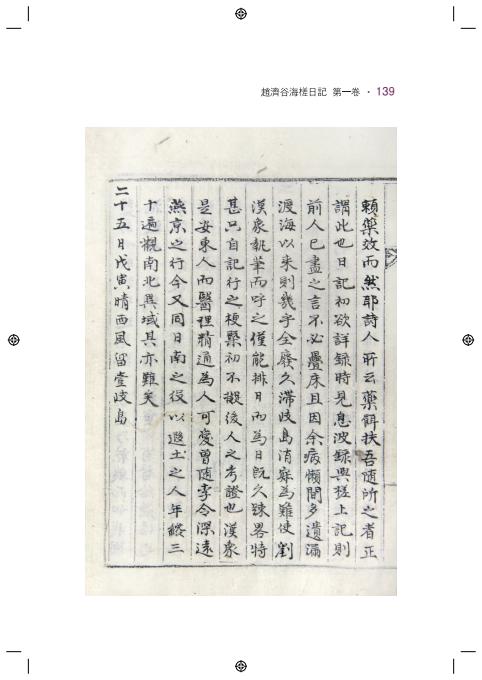 趙濟谷海槎日記 第一巻 · 139
賴藥效而然耶詩人所云藥餌扶吾隨所之者正
謂此也日記初欲詳錄時見息波錄與槎上記則
前人已盡之言不必疊床且因余病懶間多遺漏
渡海以來則幾乎全廢久滯歧島消寂為難使劉
漢象執筆而呼之僅能排日而為日旣久踈畧特
甚只自記行之梗槩初不擬後人之考證也漢象
是安東人而醫理精通為人可愛曾隨李令深遠
燕京之行今又同日南之役以遐土之人年纔三
十遍觀南北異域其亦難矣
二十五日戊寅晴西風留壹歧島